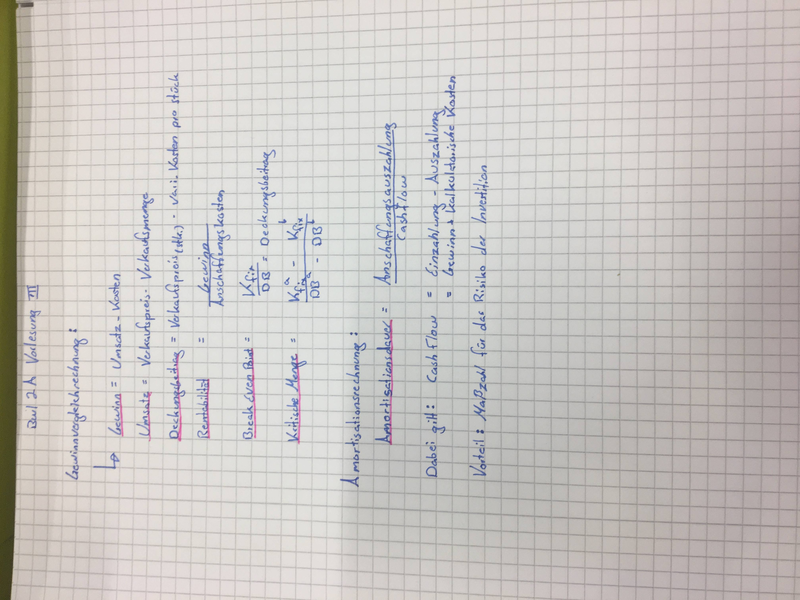 Bwl 2A Vorlesung III
Gewinnvergleichrechnung:
↳ Gewinn = Umsatz - Kosten
Umsatz = Verkaufspreis · Verkaufsmenge
Deckungsbeitrag = Verkaufspreis (stk.) - Vari. Kosten pro stück
Rentabilität = Gewinn / Anschaffungskosten
Break Even Point = Kfix / DB = Deckungsbeitrag
Kritische Menge = Kfix^a - Kfix^b / DB^a - DB^b
Amortisationsrechnung:
Amortisationsdauer = Anschaffungsauszahlung / Cashflow
Dabei gilt: Cashflow = Einzahlung - Auszahlung
= Gewinn + kalkulatorische Kosten
Vorteil: Maßzahl für das Risiko der Investition